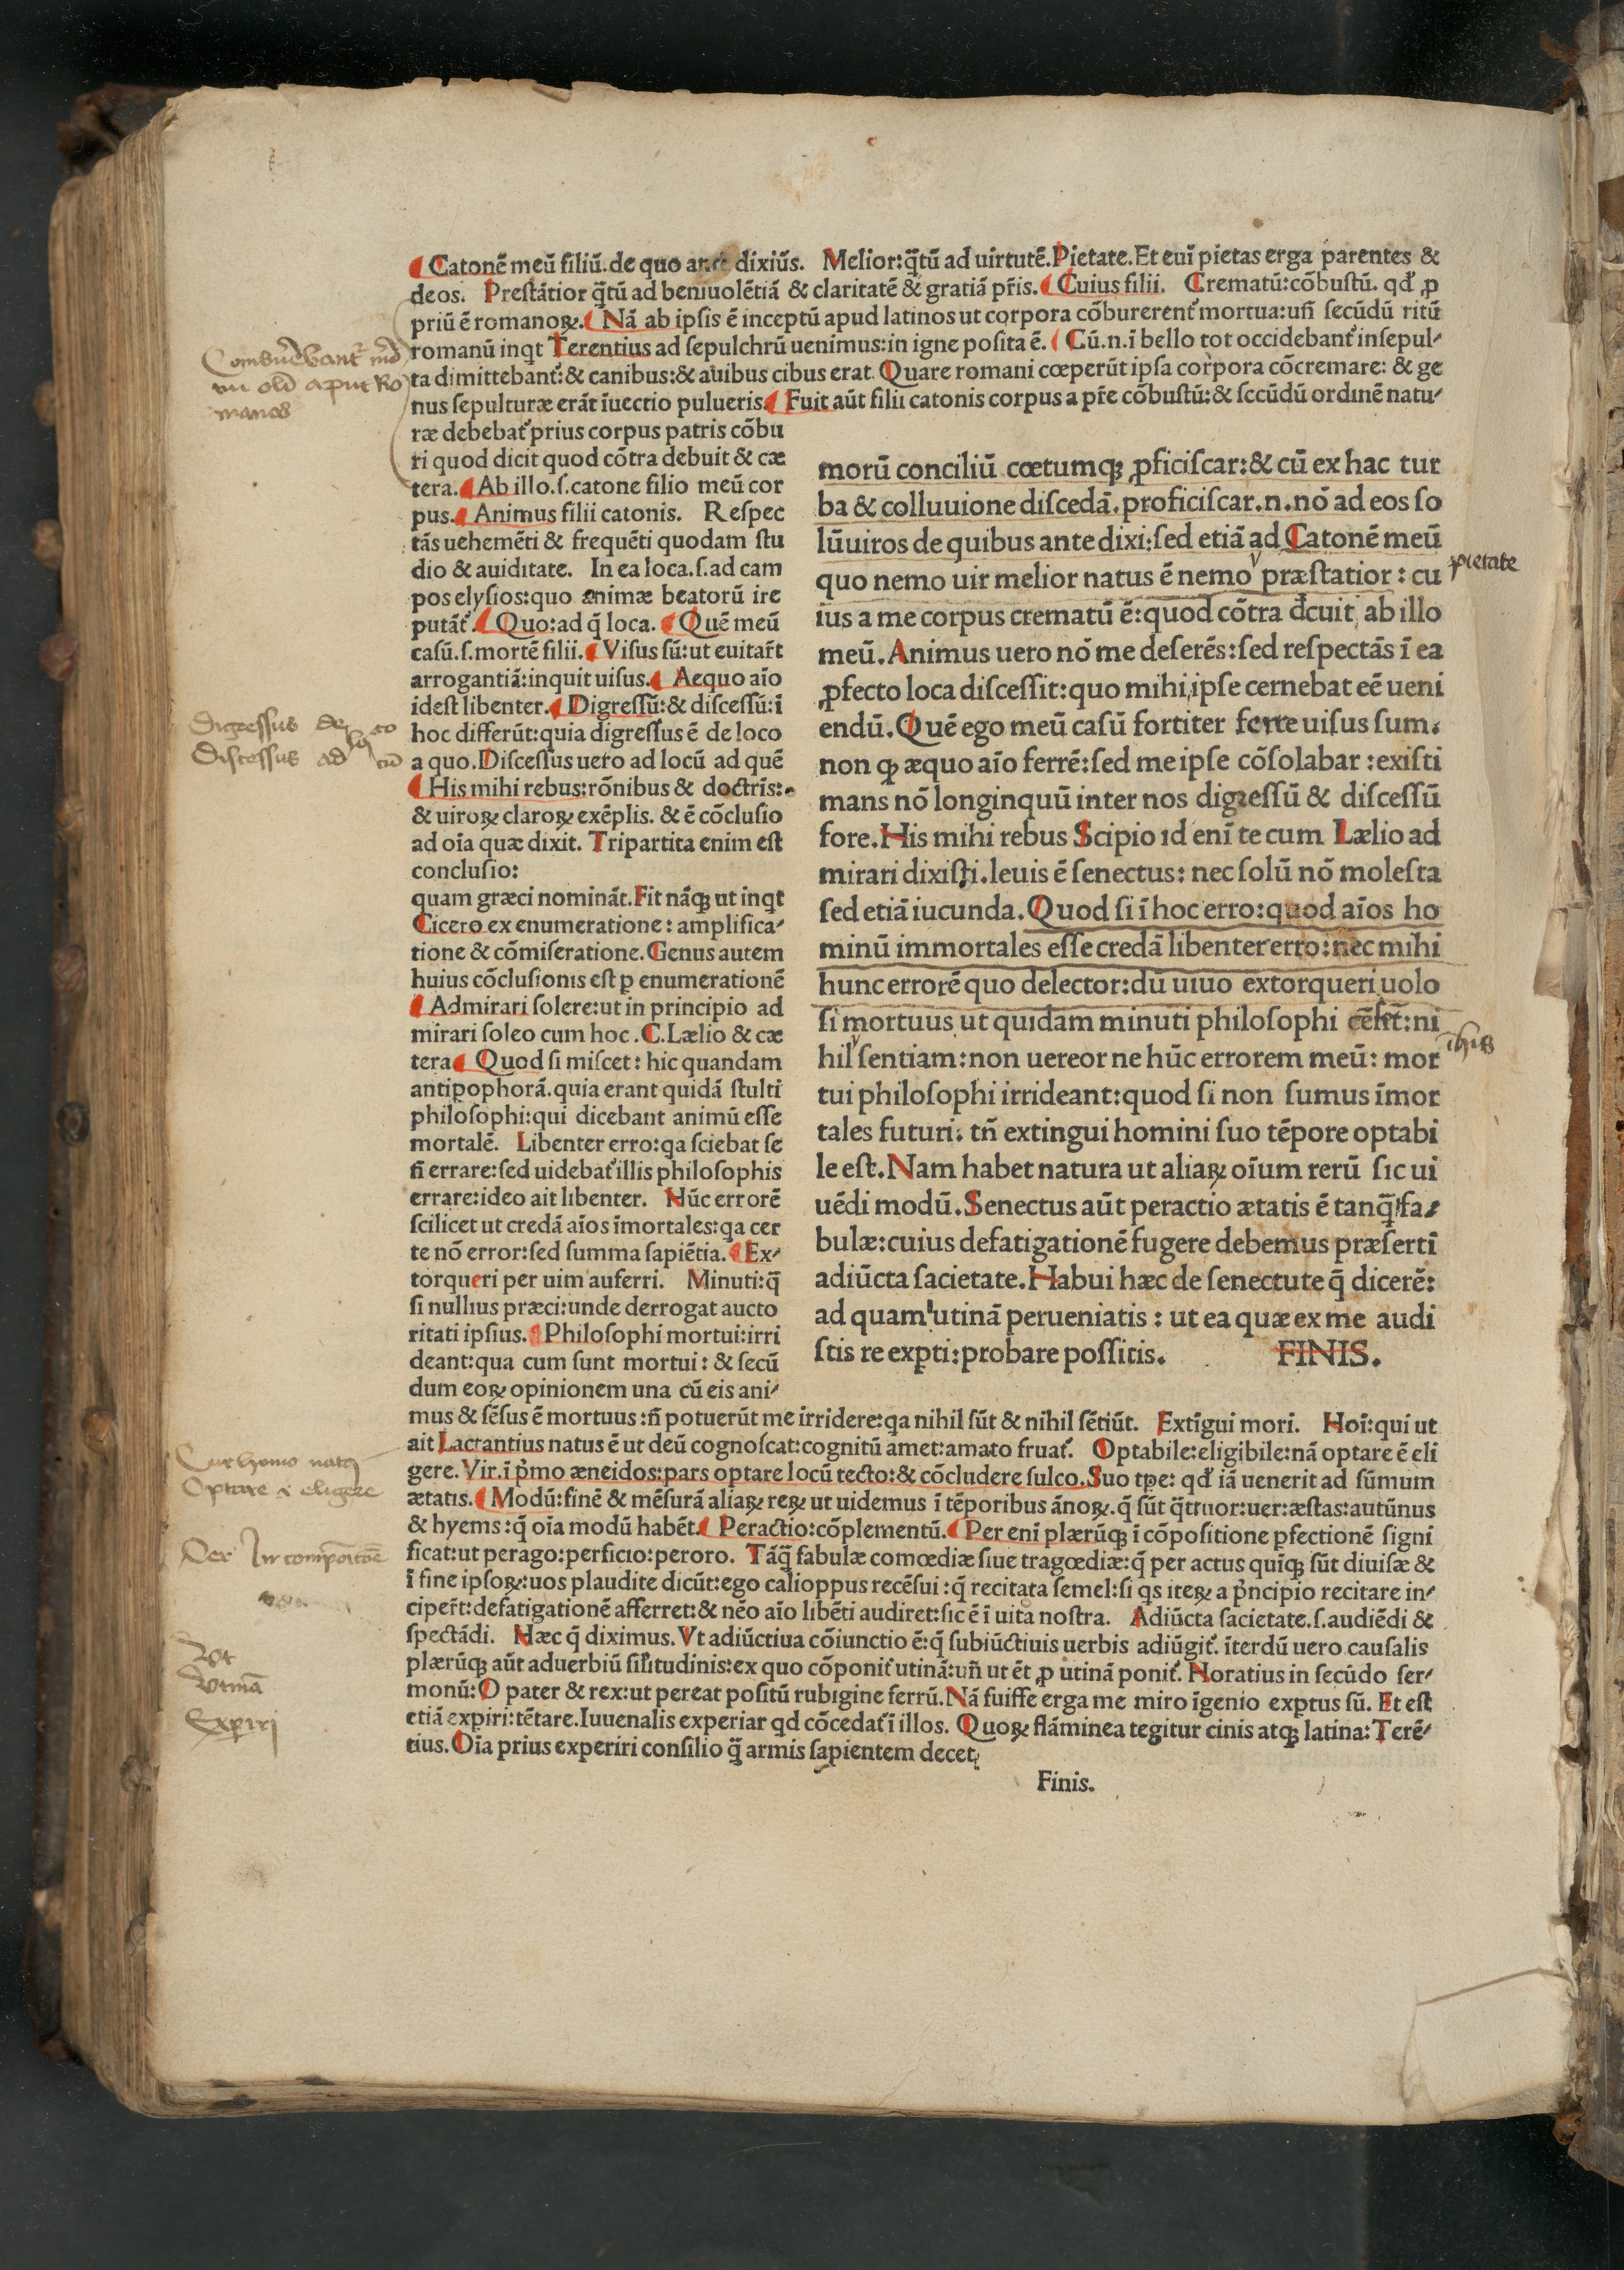 ¶ Catonē meū filiū. de quo ante dixiūs. Melior: q̄tū ad uirtutē. Pietate. Et euī pietas erga parentes &
deos. Prestātior q̄tū ad beniuolētiā & claritatē & gratiā pr̄is. ¶ Cuius filii. Crematū: cōbustū. qd' ꝓ
priū ē romanoꝝ. ¶ Nā ab ipsis ē inceptū apud latinos ut corpora cōburerent' mortua: un̄ secūdū ritū
romanū inqt Terentius ad sepulchrū uenimus: in igne posita ē. ¶ Cū. n. ī bello tot occidebant' insepul⸗
ta dimittebant': & canibus: & auibus cibus erat. Quare romani cœperūt ipsa corpora cōcremare: & ge
nus sepulturæ erāt īuectio pulueris ¶ Fuit aūt filii catonis corpus a pr̄e cōbustū: & sccūdū ordinē natu⸗
ræ debebat' prius corpus patris cōbu
ri quod dicit quod cōtra debuit & cæ
tera. ¶ Ab illo. ſ. catone filio meū cor
pus. ¶ Animus filii catonis. Respec
tās uehemēti & frequēti quodam stu
dio & auiditate. In ea loca. ſ. ad cam
pos elysios: quo animæ beatorū ire
putāt'. ¶ Quo: ad q̄ loca. ¶ Quē meū
casū. ſ. mortē filii. ¶ Visus sū: ut euitar̄t
arrogantiā: inquit uisus. ¶ Aequo aīo
idest libenter. ¶ Digressū: & discessū: ī
hoc differūt: quia digressus ē de loco
a quo. Discessus uero ad locū ad quē
¶ His mihi rebus: rōnibus & doctrīs:
& uiroꝝ claroꝝ exēplis. & ē cōclusio
ad oīa quæ dixit. Tripartita enim est
conclusio:
quam græci nomināt. Fit nāqꝫ ut inqt
Cicero ex enumeratione: amplifica⸗
tione & cōmiseratione. Genus autem
huius cōclusionis est p enumerationē
¶ Admirari solere: ut in principio ad
mirari soleo cum hoc. C. Lælio & cæ
tera ¶ Quod si miscet: hic quandam
antipophorā. quia erant quidā stulti
philosophi: qui dicebant animū esse
mortalē. Libenter erro: qa sciebat se
n̄ errare: sed uidebat' illis philosophis
errare: ideo ait libenter. Nūc errorē
scilicet ut credā aīos īmortales: qa cer
te nō error: sed summa sapiētia. ¶ Ex⸗
torqueri per uim auferri. Minuti: q̄
si nullius præci: unde derrogat aucto
ritati ipsius. ¶ Philosophi mortui: irri
deant: qua cum sunt mortui: & secū
dum eoꝝ opinionem una cū eis ani⸗
morū conciliū cœtumqꝫ ꝓficiscar: & cū ex hac tur
ba & colluuione discedā. proficiscar. n. nō ad eos so
lū uiros de quibus ante dixi: sed etiā ad Catonē meū
quo nemo uir melior natus ē nemo præstatior: cu
ius a me corpus crematū ē: quod cōtra dcuit ab illo
meū. Animus uero nō me deserēs: sed respectās ī ea
ꝓfecto loca discessit: quo mihi ipse cernebat eē ueni
endū. Quē ego meū casū fortiter ferre uisus sum.
non qꝫ æquo aīo ferrē: sed me ipse cōsolabar: existi
mans nō longinquū inter nos digressū & discessū
fore. His mihi rebus Scipio id enī te cum Lælio ad
mirari dixisti. leuis ē senectus: nec solū nō molesta
sed etiā iucunda. Quod si ī hoc erro: quod aīos ho
minū immortales esse credā libenter erro: nec mihi
hunc errorē quo delector: dū uiuo extorqueri uolo
si mortuus ut quidam minuti philosophi cēsēt: ni
hil sentiam: non uereor ne hūc errorem meū: mor
tui philosophi irrideant: quod si non sumus īmor
tales futuri. tn̄ extingui homini suo tēpore optabi
le est. Nam habet natura ut aliaꝝ oīum rerū sic ui
uēdi modū. Senectus aūt peractio ætatis ē tanq̄ fa⸗
bulæ: cuius defatigationē fugere debemus præsertī
adiūcta sacietate. Habui hæc de senectute q̄ dicerē:
ad quam utinā perueniatis: ut ea quæ ex me audi
stis re expti: probare possitis. FINIS.
mus & sēsus ē mortuus: n̄ potuerūt me irridere: qa nihil sūt & nihil sētiūt. Extīgui mori. Hoī: qui ut
ait Lactantius natus ē ut deū cognoscat: cognitū amet: amato fruat'. Optabile: eligibile: nā optare ē eli
gere. Vir. ī pͥmo æneidos: pars optare locū tecto: & cōcludere sulco. Suo tpe: qd' iā uenerit ad sūmum
ætatis. ¶ Modū: finē & mēsurā aliaꝝ reꝝ ut uidemus ī tēporibus ānoꝝ. q̄ sūt q̄ttuor: uer: æstas: autūnus
& hyems: q̄ oīa modū habēt. ¶ Peractio: cōplementū. ¶ Per enī plærūqꝫ ī cōpositione pfectionē signi
ficat: ut perago: perficio: peroro. Tāq̄ fabulæ comœdiæ siue tragœdiæ: q̄ per actus quīqꝫ sūt diuisæ &
ī fine ipsoꝝ: uos plaudite dicūt: ego calioppus recēsui: q̄ recitata semel: si qs iteꝝ a pͥncipio recitare in⸗
ciper̄t: defatigationē afferret: & nēo aīo libēti audiret: sic ē ī uita nostra. Adiūcta sacietate. ſ. audiēdi &
spectādi. Hæc q̄ diximus. Vt adiūctiua cōiunctio ē: q̄ subiūctiuis uerbis adiūgit'. īterdū uero causalis
plærūqꝫ aūt aduerbiū sil'itudinis: ex quo cōponit' utinā: un̄ ut ēt ꝓ utinā ponit'. Horatius in secūdo ser⸗
monū: O pater & rex: ut pereat positū rubigine ferrū. Nā fuisse erga me miro īgenio exptus sū. Et est
etiā expiri: tētare. Iuuenalis experiar qd cōcedat' ī illos. Quoꝝ flāminea tegitur cinis atqꝫ latina: Terē⸗
tius. Oīa prius experiri consilio q̄ armis sapientem decet
Finis.
manos
Digressus de loco
Discessus ad locū
pietate
Cur homo natꝰ
Optare ē eligere
Per In compositōe
Vt
Vtinā
Expiri